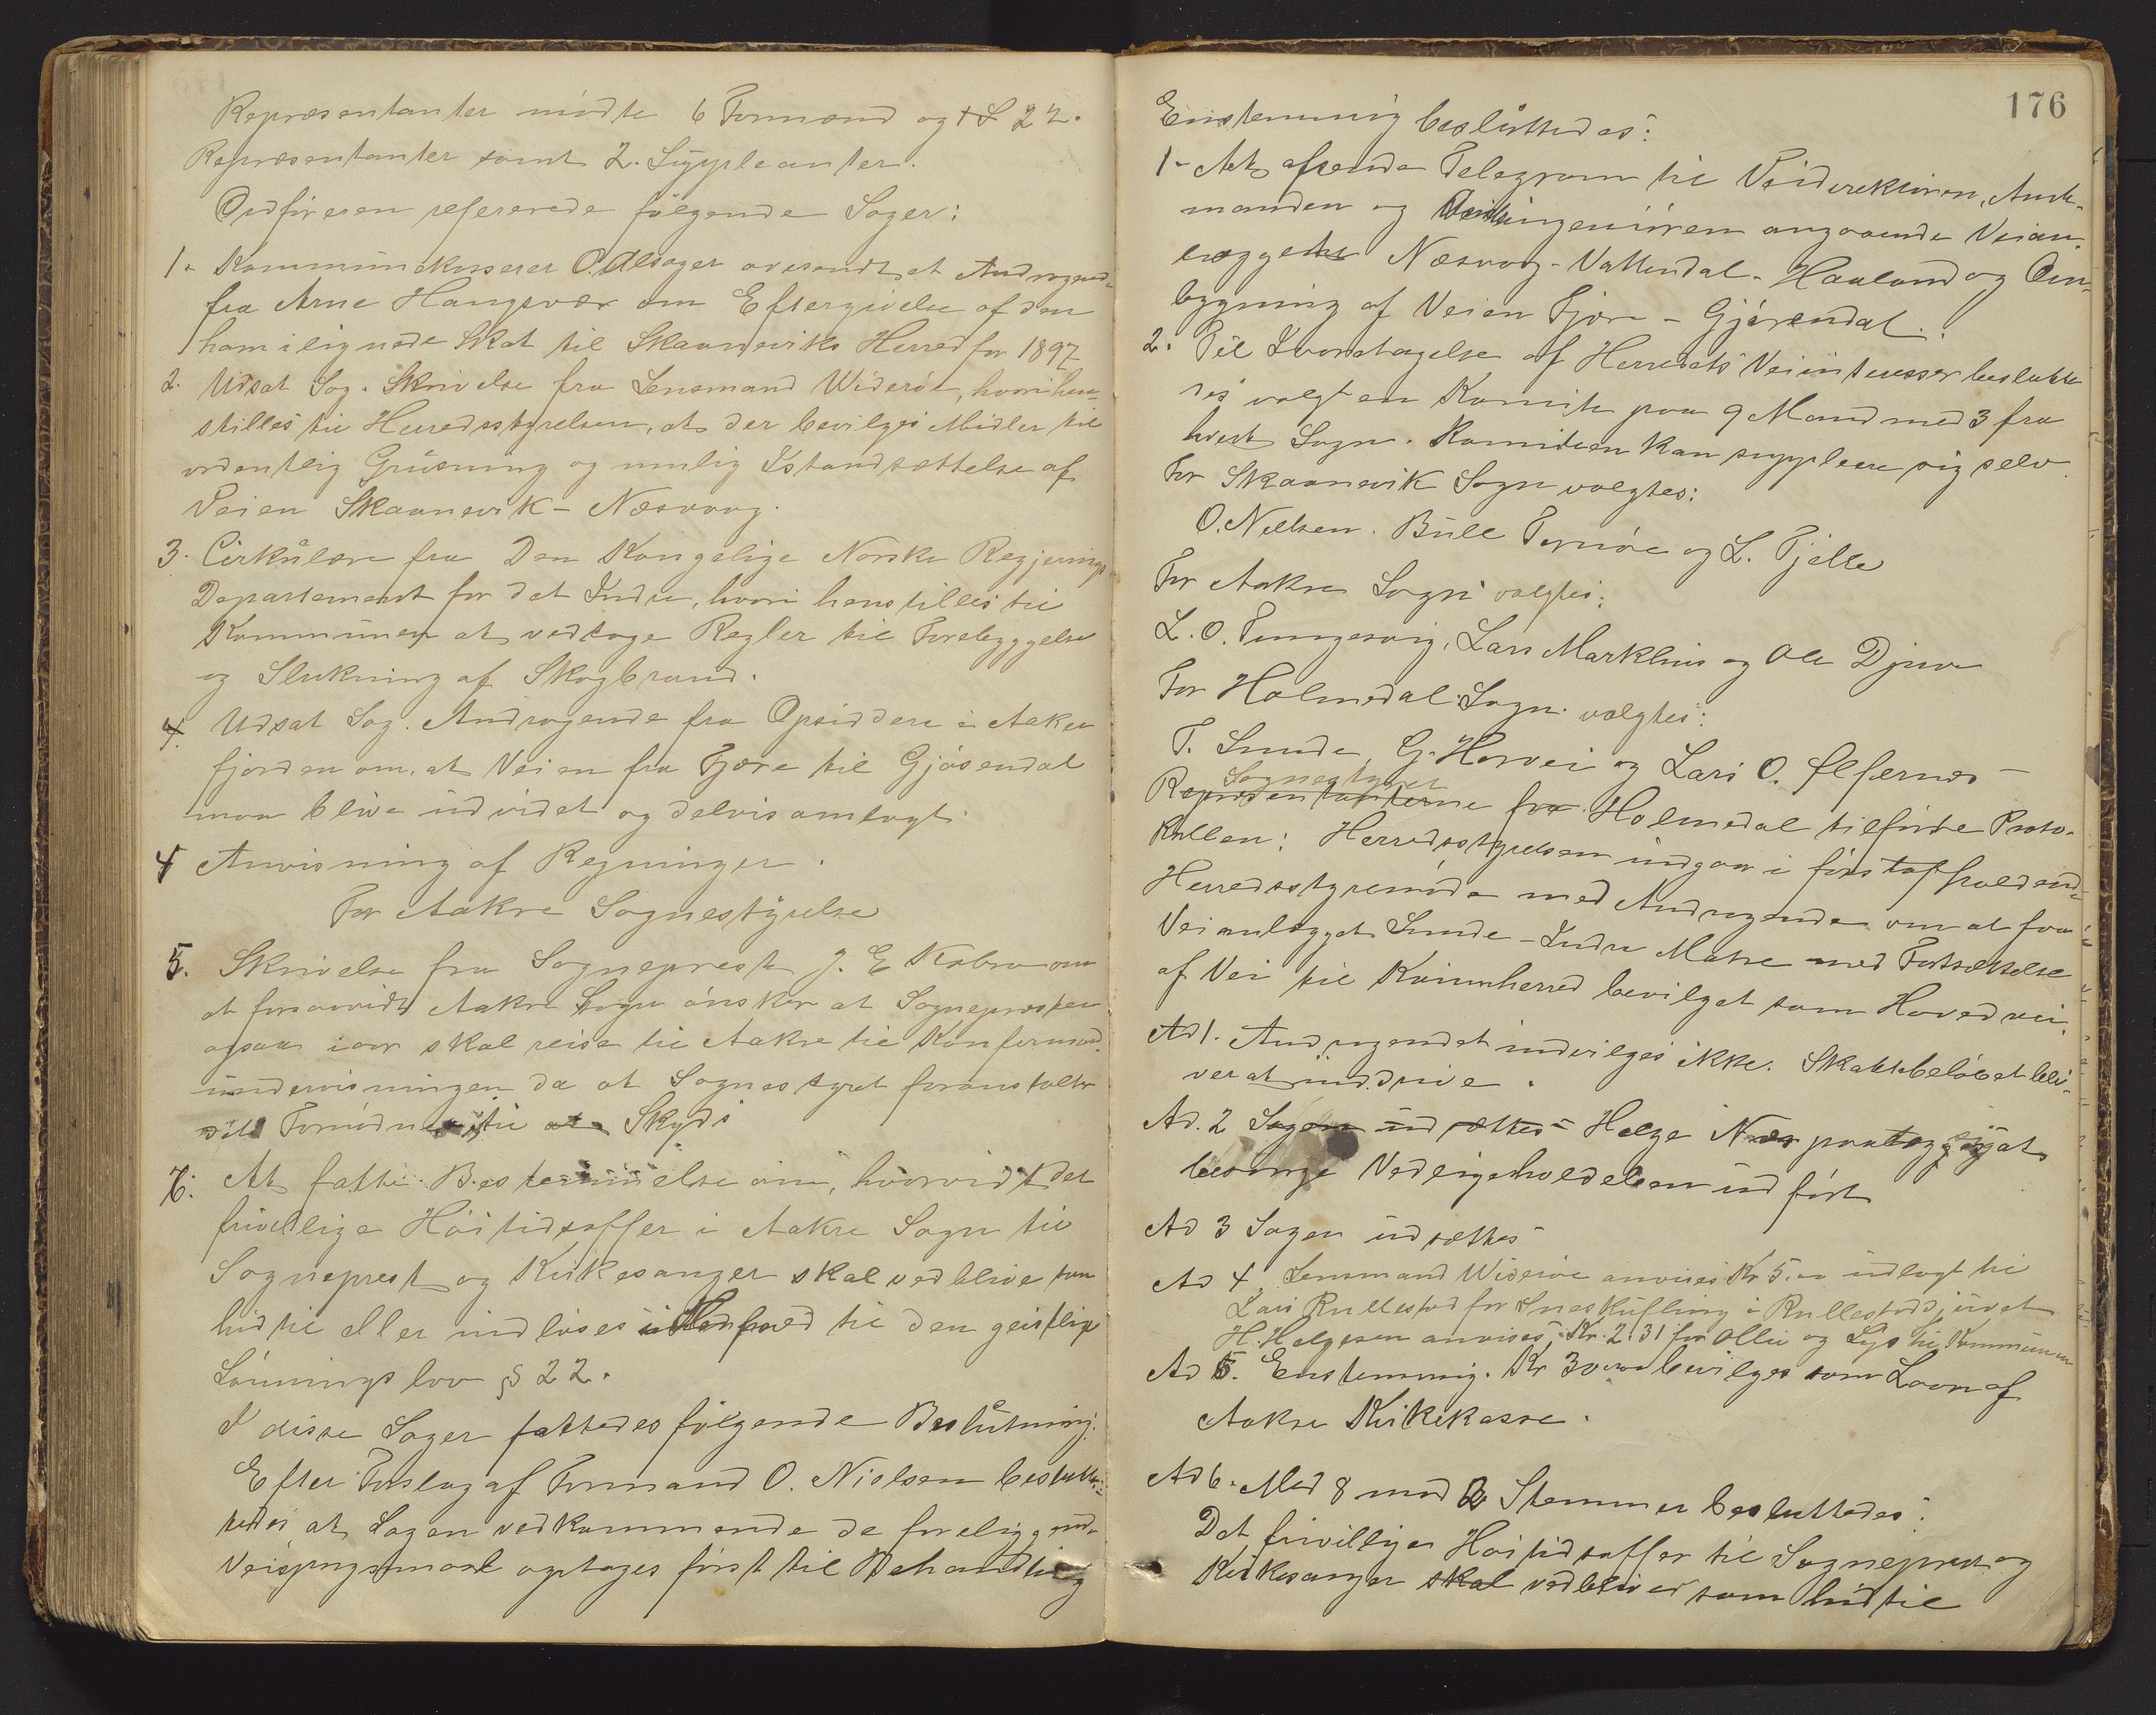 Repræsentanter mødte 6 Formænd og 22.
Repræsentanter samt 2. Suppleanter.
Ordføreren refererede følgende Sager:
1. Kommunekasserer O. Alsager oversendt et Andragende
fra Arne Haugsvær om Eftergivelse af den
ham ilignede Skat til Skaaneviks Herred for 1897
2. Udsat Sag. Skrivelse fra Lensmand Widerøe, hvori hen-
stilles til Herredsstyrelsen, at der bevilges Midler til
ordentlig Grusning og mulig Istandsættelse af
Veien Skaanevik - Næsvaag.
3. Cirkulære fra Den Kongelige Norske Regjerings
Departement for det Indre, hvori henstilles til
Kommunen at vedtage Regler til Forebyggelse
og Slukning af Skogbrand.
4. Udsat Sag. Andragende fra Opsiddere i Aakre
fjorden om, at Veien fra Fjære til Gjøsendal
maa blive udvidet og delvis omlagt.
4 Anvisning af Regninger.
For Aakre Sognestyrelse
5. Skrivelse fra Sogneprest J. E. om
at forsaavidt Aakre Sogn ønsker at Sognepresten
ogsaa iaar skal reise til Aakre til Konfirmand-
undervisningen da at Sognestyret foranstalter
til Skyds
6. At fatte Bestemmelse om, hvorvidt det
frivillige Høitidsoffer i Aakre Sogn til
Sogneprest og Kirkesanger skal vedblive som
hidtil eller indløses i Henhold til den geistlige
Lønningslov § 22.
I disse Sager fattedes følgende Beslutning:
Efter Forslag af Formand O. Nielsen beslut-
tedes at Sagen vedkommende de foreliggende
Veispørgsmaal optages først til Behandling
176
Enstemmig besluttedes:
1- At afsende Telegram til Veidirektøren, Amt-
manden og Amtsingeniøren angaaende Veian-
læggene Næsvaag - Vattendal - Haaland og Om-
bygning af Veien Fjære - Gjøsendal.
2. Til Ivaretagelse af Herredets Veiinteresser beslutte
des valgt en Komite paa 9 Mand med 3 fra
hvert Sogn. Komiteen kan supplere sig selv.
For Skaanevik Sogn valgtes:
O. Nielsen. Bull Tornøe og L. Fjelle
For Aakre Sogn valgtes:
L. O. Tungesvig, Lars Markhus og Ole Djuve
For Holmedal Sogn valgtes:
T. Sunde G. Horvei og Lars O. Ølfernes -
Sognestyret
Repræsentanterne fra Holmedal tilførte Proto-
kollen: Herredsstyrelsen indgaar i først afholdende
Herredsstyremøde med Andragende om at faa
Veianlægget Sunde - Indre Matre med Fortsættelse
af Vei til Kvinnherred bevilget som Hovedvei.
Ad 1. Andragendet indvilges ikke. Skattebeløbet bli-
ver at inddrive.
Ad. 2 Sagen udsættes - Helge Næs paatog sig at
besørge Vedligeholdelsen udført
Ad 3 Sagen udsættes
Ad 4. Lensmand Widerøe anvises Kr 5.00 udlagt til
Lars Rullestad for Sneskufling i Rullestadsjuvet
H. Helgesen anvises Kr. 2.31 for Olie og Lys til Kommunen
Ad 5. Enstemmig. Kr 30 bevilges som Laan af
Aakre Kirkekasse.
Ad 6. Med 8 mod 2 Stemmer besluttedes:
Det frivillige Høitidsoffer til Sogneprest og
Kirkesanger skal vedbliver som hidtil